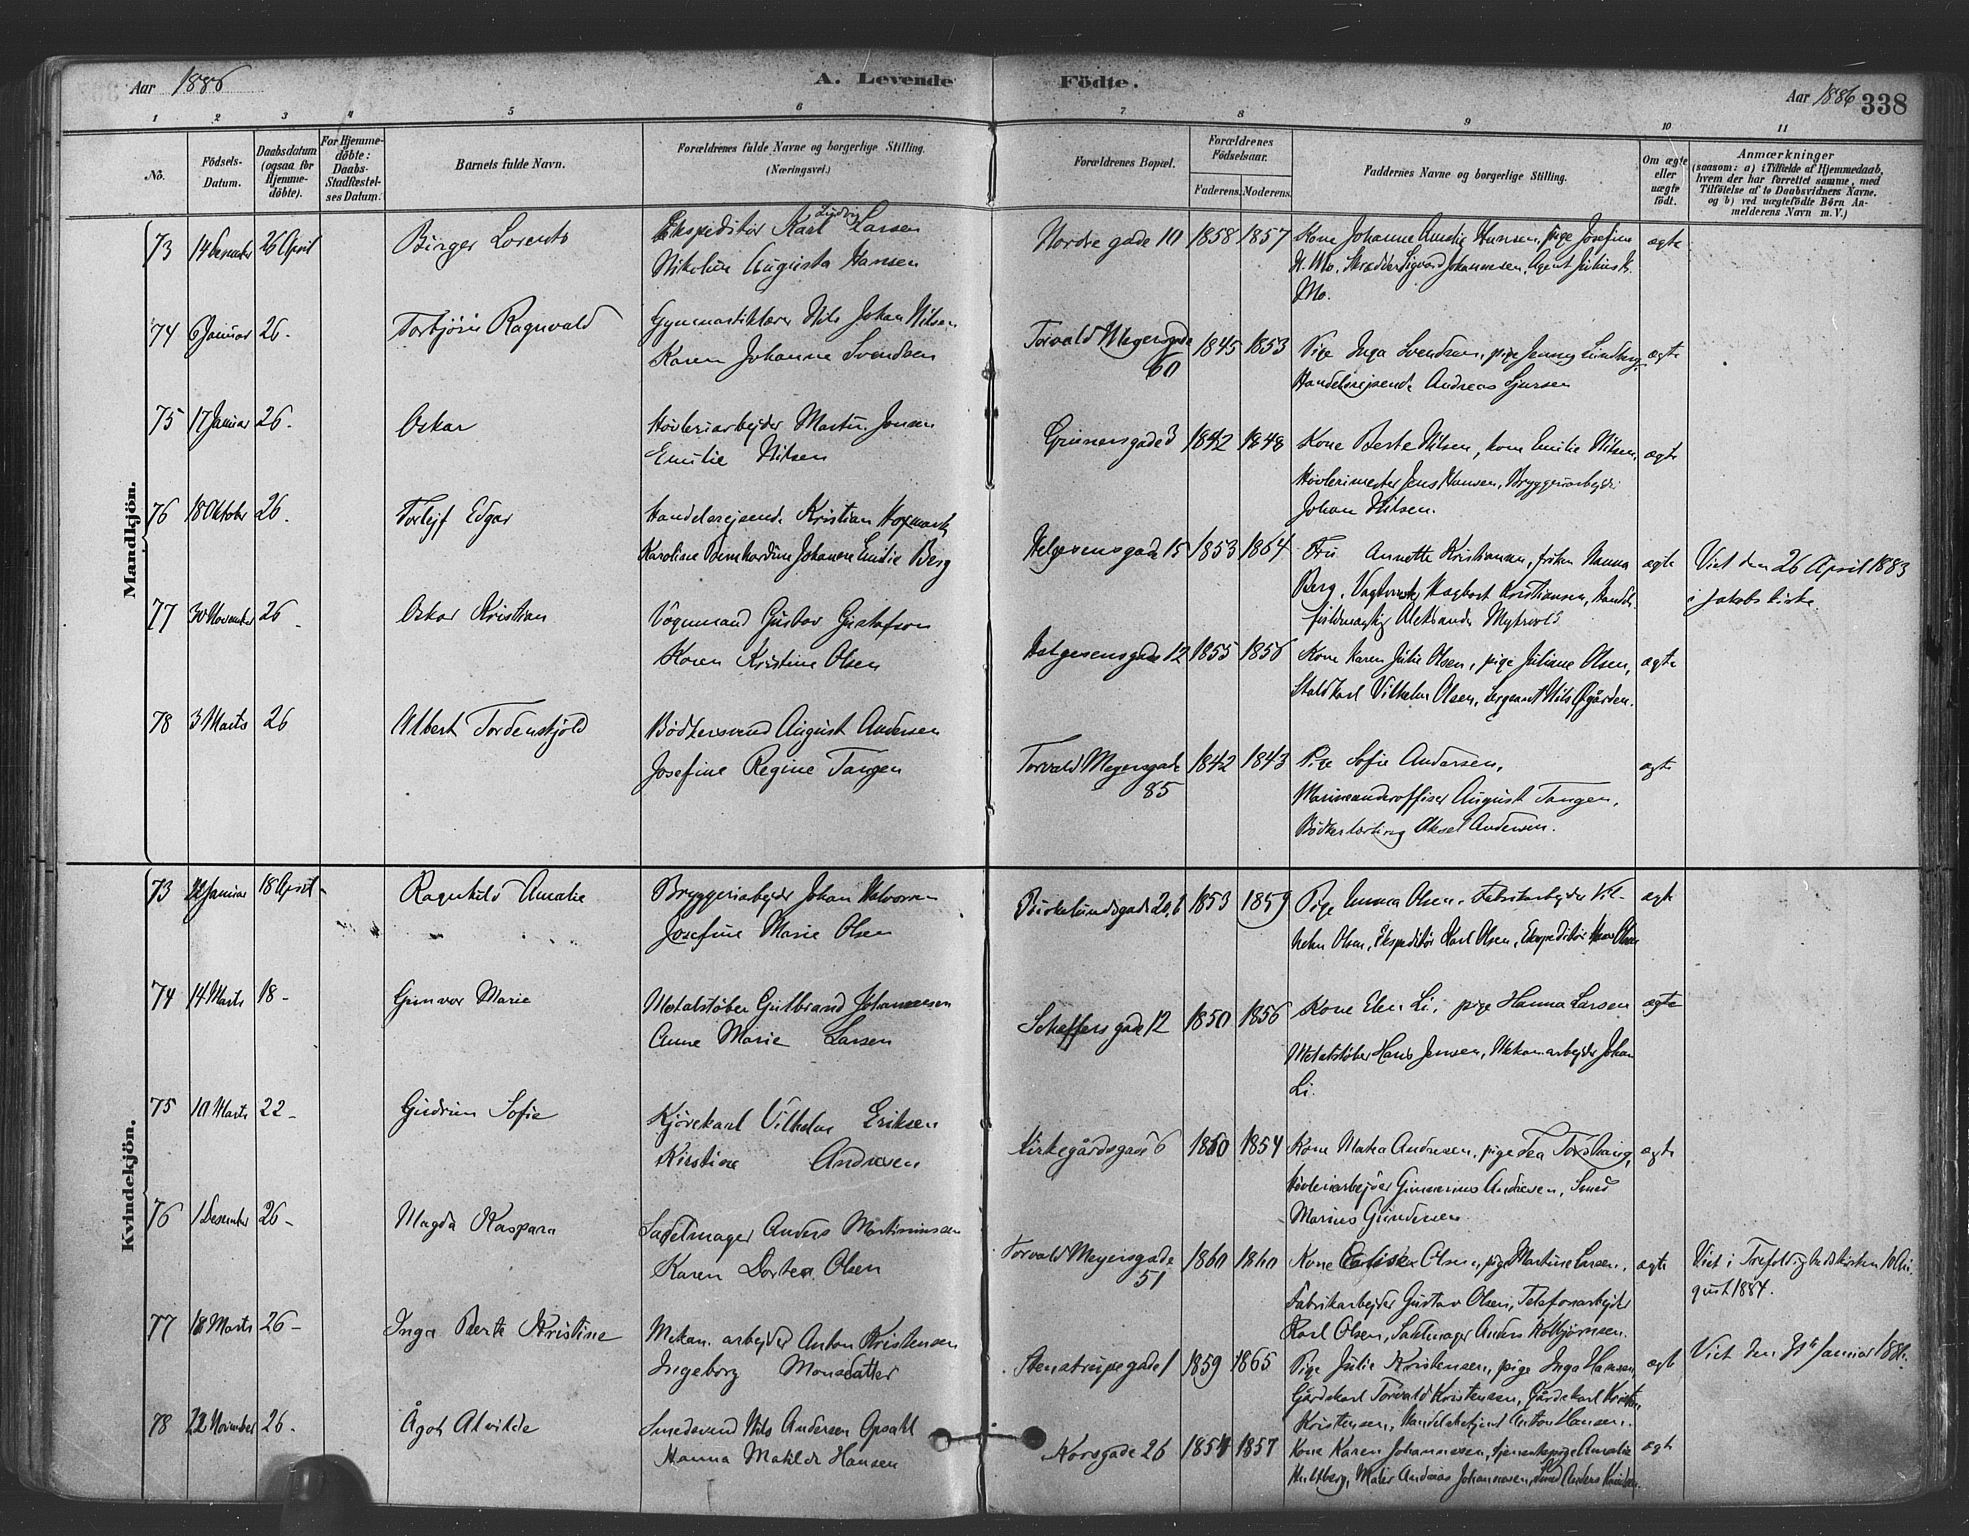 Aar 1886 A. Levende Födte. Aar 1886 338
1 2 3 4 5 6 7 8 9 10 11
No.
Födsels-Datum.
Daabsdatum (ogsaa for Hjemmedöbte).
For Hjemmedöbte: Daabs-Stadfæstelses Datum.
Barnets fulde Navn.
Forældrenes fulde Navne og borgerlige Stilling. (Næringsvei.)
Forældrenes Bopæl.
Forældrenes Födselsaar.
Faderens. Moderens.
Faddernes Navne og borgerlige Stilling.
Om ægte eller uægte födt.
Anmærkninger
(saasom: a) i Tilfælde af Hjemmedaab, hvem der har forrettet samme, med Tilföielse af to Daabsvidners Navne, og b) ved uægtefödte Börn Anmelderens Navn m. V.)
Mandkjön.
73 14 Desember 26 April Birger Lorents Ekspeditör Karl Ludvig Larsen Nordre gade 10 1858 1857 Kone Johanne Amalie Hansen, pige Josefine ægte
Nikoline Augusta Hansen H. Mo, Skrædder Sigvard Johannesen, Agent Julius K.
Mo.
74 6 Januar 26. Torbjörn Ragnvald Gymnastiklærer Nils Johan Nilsen Torvald Meyersgade 60 1845 1853 Pige Inga Svendsen, pige Jenny Lundberg, ægte
Karen Johanne Svendsen Handelsrejsende Andreas Sjursen
75 17 Januar 26. Oskar Hövleriarbejder Martin Jensen Grünersgade 3 1842 1848 Kone Berte Nilsen, kone Emilie Nilsen, ægte
Emilie Nilsen Hövlerimester Jens Hansen, Bryggeriarbejder
Johan Nilsen.
76 18 Oktober 26. Torlejf Edgar Handelsrejsende Kristian Helgesensgade 15 1853 1864 Fru Annette Kristiansen, fröken Nanna ægte Viet den 26 April 1883
Karoline Bernhardine Johanne Emilie Berg Berg, Hagbart Kristiansen, i Jakobs kirke.
Aleksander Myhrvold
77 30 November 26. Oskar Kristian Vognmand Gustav Gustafson Helgesensgade 12 1855 1856 Kone Karen Julie Olsen, pige Juliane Olsen, ægte
Karen Kristine Olsen Staldkarl Vilhelm Olsen, Sergeant Nils Ögården.
78 3 Marts 26 Albert Tordenskjold Bödkersvend August Andersen Torvald Meyersgade 85 1842 1843 Pige Sofie Andersen, ægte
Josefine Regine Tangen Marineunderoffiser August Tangen,
Bödkerlærling Aksel Andersen.
Kvindekjön.
73 22 Januar 18 April Ragnhild Amalie Bryggeriarbejder Johan Halvorsen Birkelundsgade 20,6 1853 1859 Pige Emma Olsen, Fabrikarbejder Vil- ægte
Josefine Marie Olsen helm Olsen, Ekspeditör Karl Olsen, Ekspeditör Hans Olsen
74 14 Marts 18 - Gunvor Marie Metalstöber Gulbrand Johannesen Schæffersgade 12 1850 1856 Kone Elen Li, pige Hanna Larsen ægte
Anne Marie Larsen Metalstöber Hans Jensen, Mekan.arbejder Johan
Li.
75 10 Marts 22 - Gudrun Sofie Kjörekarl Vilhelm Eriksen Kirkegårdsgade 6 1860 1854 Kone Matea Andresen, pige Tea ægte
Kirstine Andresen Hövleriarbejder Gunnerius Andresen, Smed
Marius Gundersen
76 1 Desember 26 - Magda Kaspara Sadelmager Anders Martiniussen Torvald Meyersgade 51 1860 1860 Kone Olsen, pige Martine Larsen, ægte Viet i Trefoldighedskirken 10 Au-
Karen Dortea Olsen Fabrikarbejder Gustav Olsen, Telefonarbejder gust 1884.
Karl Olsen, Sadelmager Anders Kolbjörnsen.
77 18 Marts 26 - Inga Berte Kristine Mekan. arbejder Anton Kristensen Stenstrupsgade 1 1859 1865 Pige Julie Kristensen, pige Inga Hansen, ægte Viet den Januar 188
Ingeborg Monsdatter Gårdskarl Torvald Kristensen, Gårdskarl
Kristensen, Handelsbetjent Anton Hansen.
78 22 November 26. Ågot Alvilde Smedsvend Nils Andersen Opsahl Korsgade 26 1854 1857 Kone Karen Johannessen, tjenestepige Amalie ægte
Hanna Matilde Hansen Hultberg, Maler Andreas Johannesen, Smed Anders